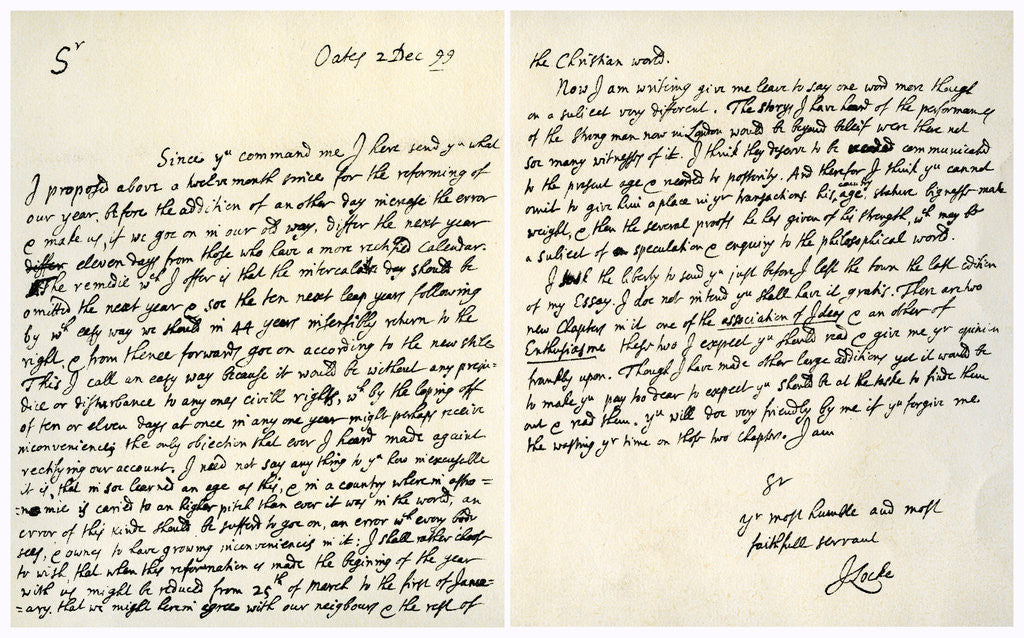 Sr
Oates 2 Dec 99
Since yu command me I here send yu what
I proposed above a twelve month since for the reforming of
our year, before the addition of another day increase the error
& make us, if we goe on in our old way, differ the next year
differ eleven days from those who have a more rectified Calendar.
The remedie wch I offer is that the intercalar day should be
omitted the next year & soe the ten next leap years following
by wch easy way we should in 44 years insensibly return to the
right, & from thence forwards goe on according to the new stile
This I call an easy way because it would be without any preju=
dice or disturbance to any ones civill rights, wch by the loping off
of ten or eleven days at once in any one year might perhaps receive
inconveniencies the only objection that ever I heard made against
rectifying our account. I need not say any thing to yu how inexcusable
it is, that in soe learned an age as this, & in a country wherein astro=
=nomie is caried to an higher pitch than ever it was in the world, an
error of this kinde should be sufferd to goe on, an error wch every body
sees, & ownes to have growing inconveniencies in it: I shall rather choose
to wish that when this reformation is made the begining of the year
with us might be reduced from 25th of March to the first of Janu=
=ary. that we might herein agree with our neigbours & the rest of
the Christian world.
Now I am writing give me leave to say one word more though
on a subiect very different. The storys I have heard of the performances
of the strong man now in London would be beyond beleif were there not
soe many witnesses of it. I think they deserve to be communicated
to the present age & recorded to posterity. And therefor I think yu cannot
omit to give him a place in yr transactions his country age, stature bigness make
weight, & then the several proofs he has given of his strength, wch may be
a subiect of speculation & enquiry to the philosophical world.
I took the liberty to send yu just before I left the town the last edition
of my Essay. I doe not intend yu shall have it gratis. There are two
new Chapters in it one of the association of Ideas & an other of
Enthusiasme these two I expect yu should read & give me yr opinion
frankly upon. Though I have made other large additions yet it would be
to make yu pay too dear to expect yu should be at the taske to finde them
out & read them. yu will doe very friendly by me if yu forgive me
the wasting yr time on those two chapters. I am
Sr
yr most humble and most
faithfull servant
J Locke